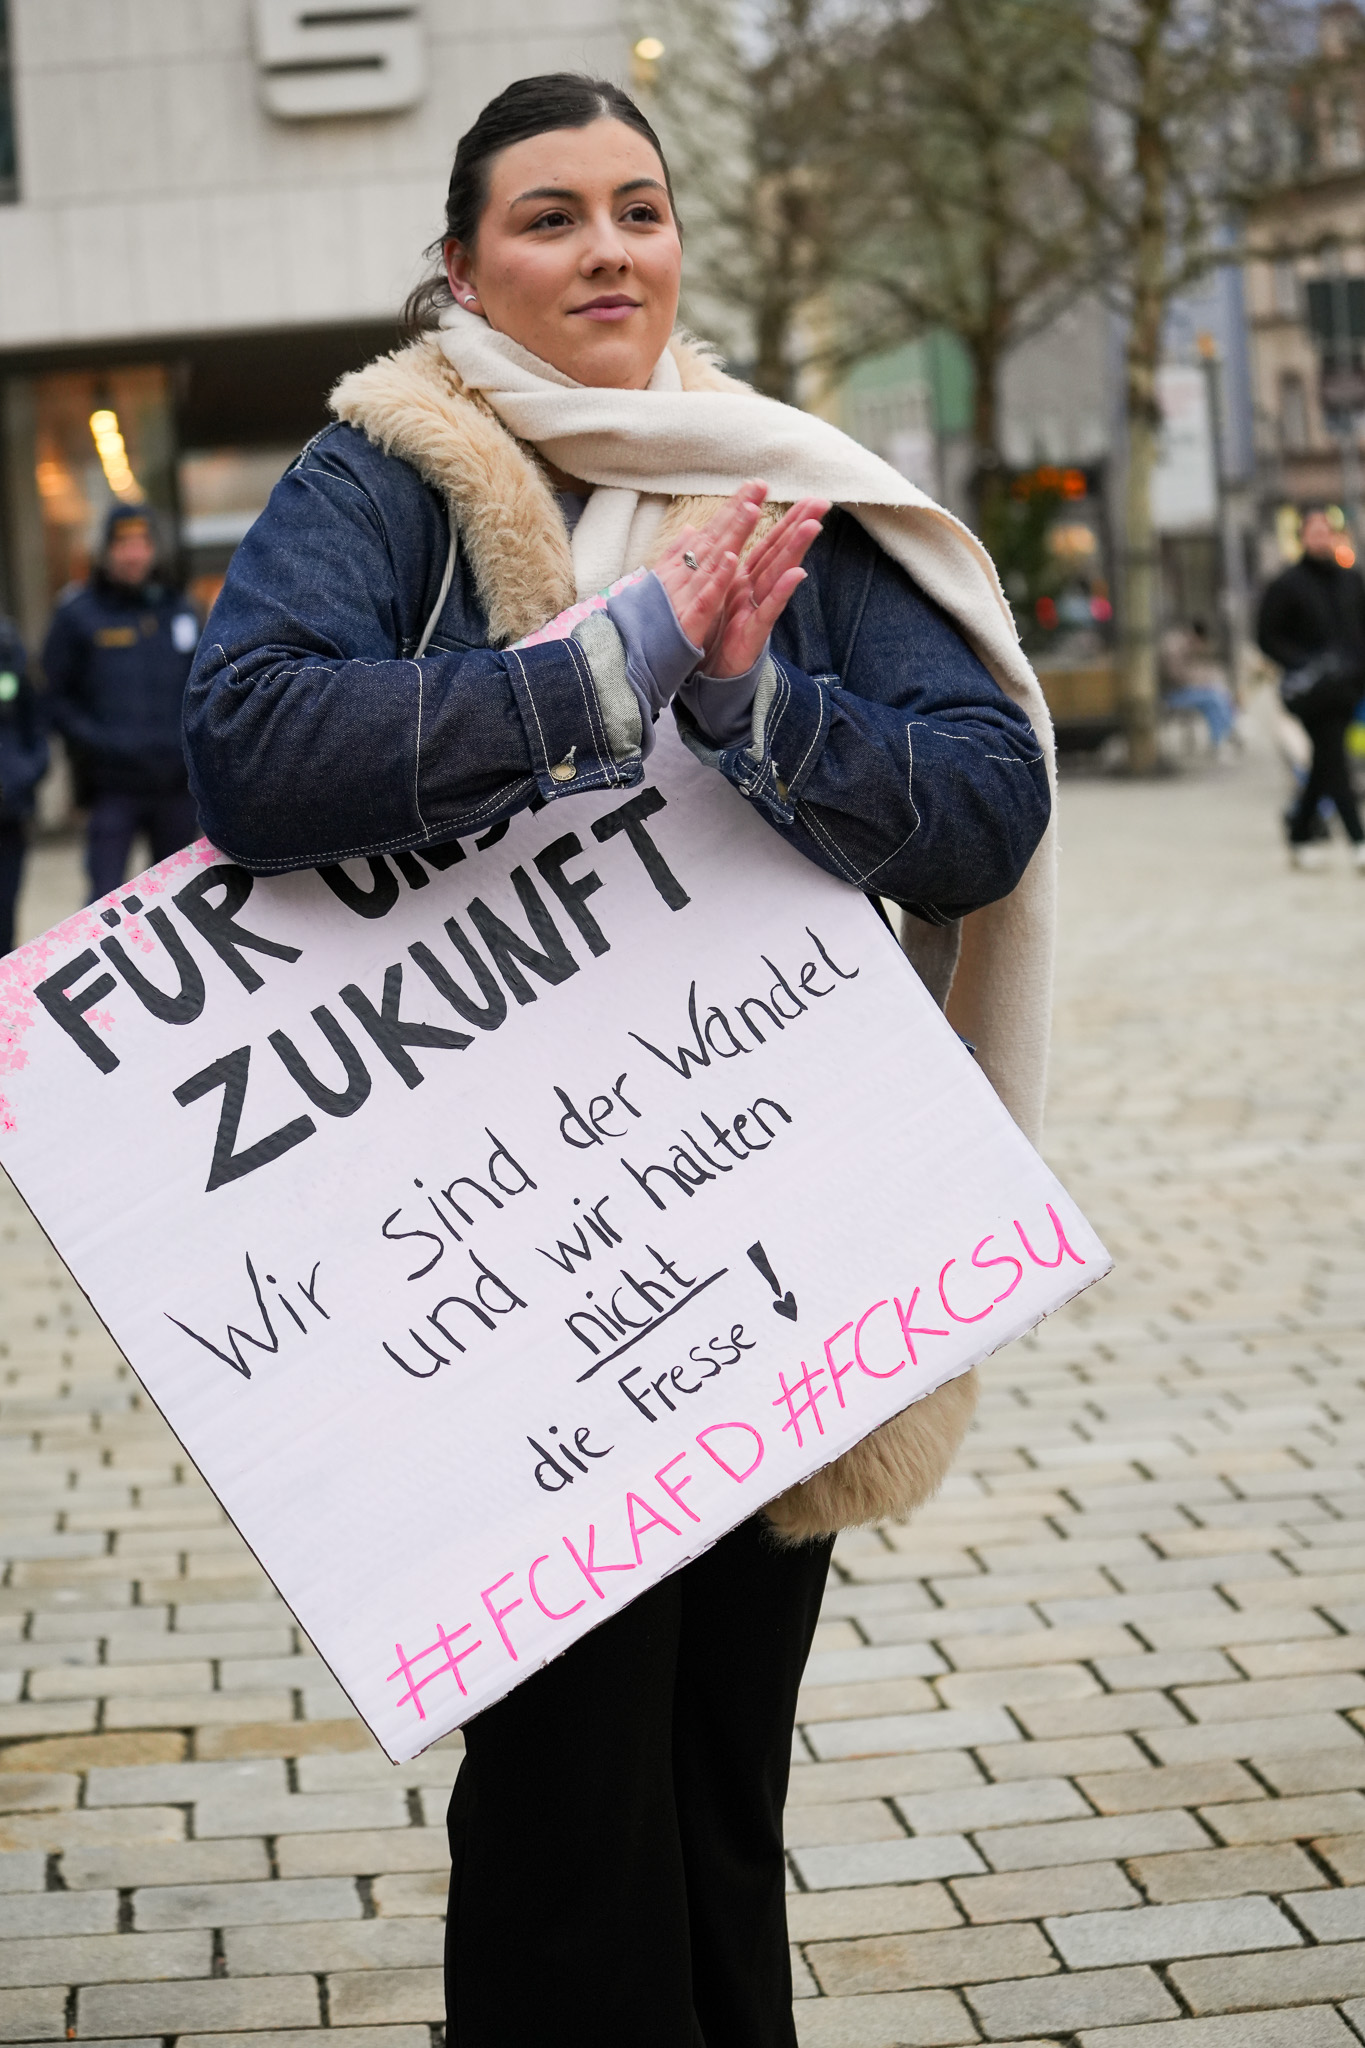 FÜR UNS
ZUKUNFT
Wir sind der Wandel
und wir halten
nicht
die Fresse!
#FCKAFD #FCKCSU